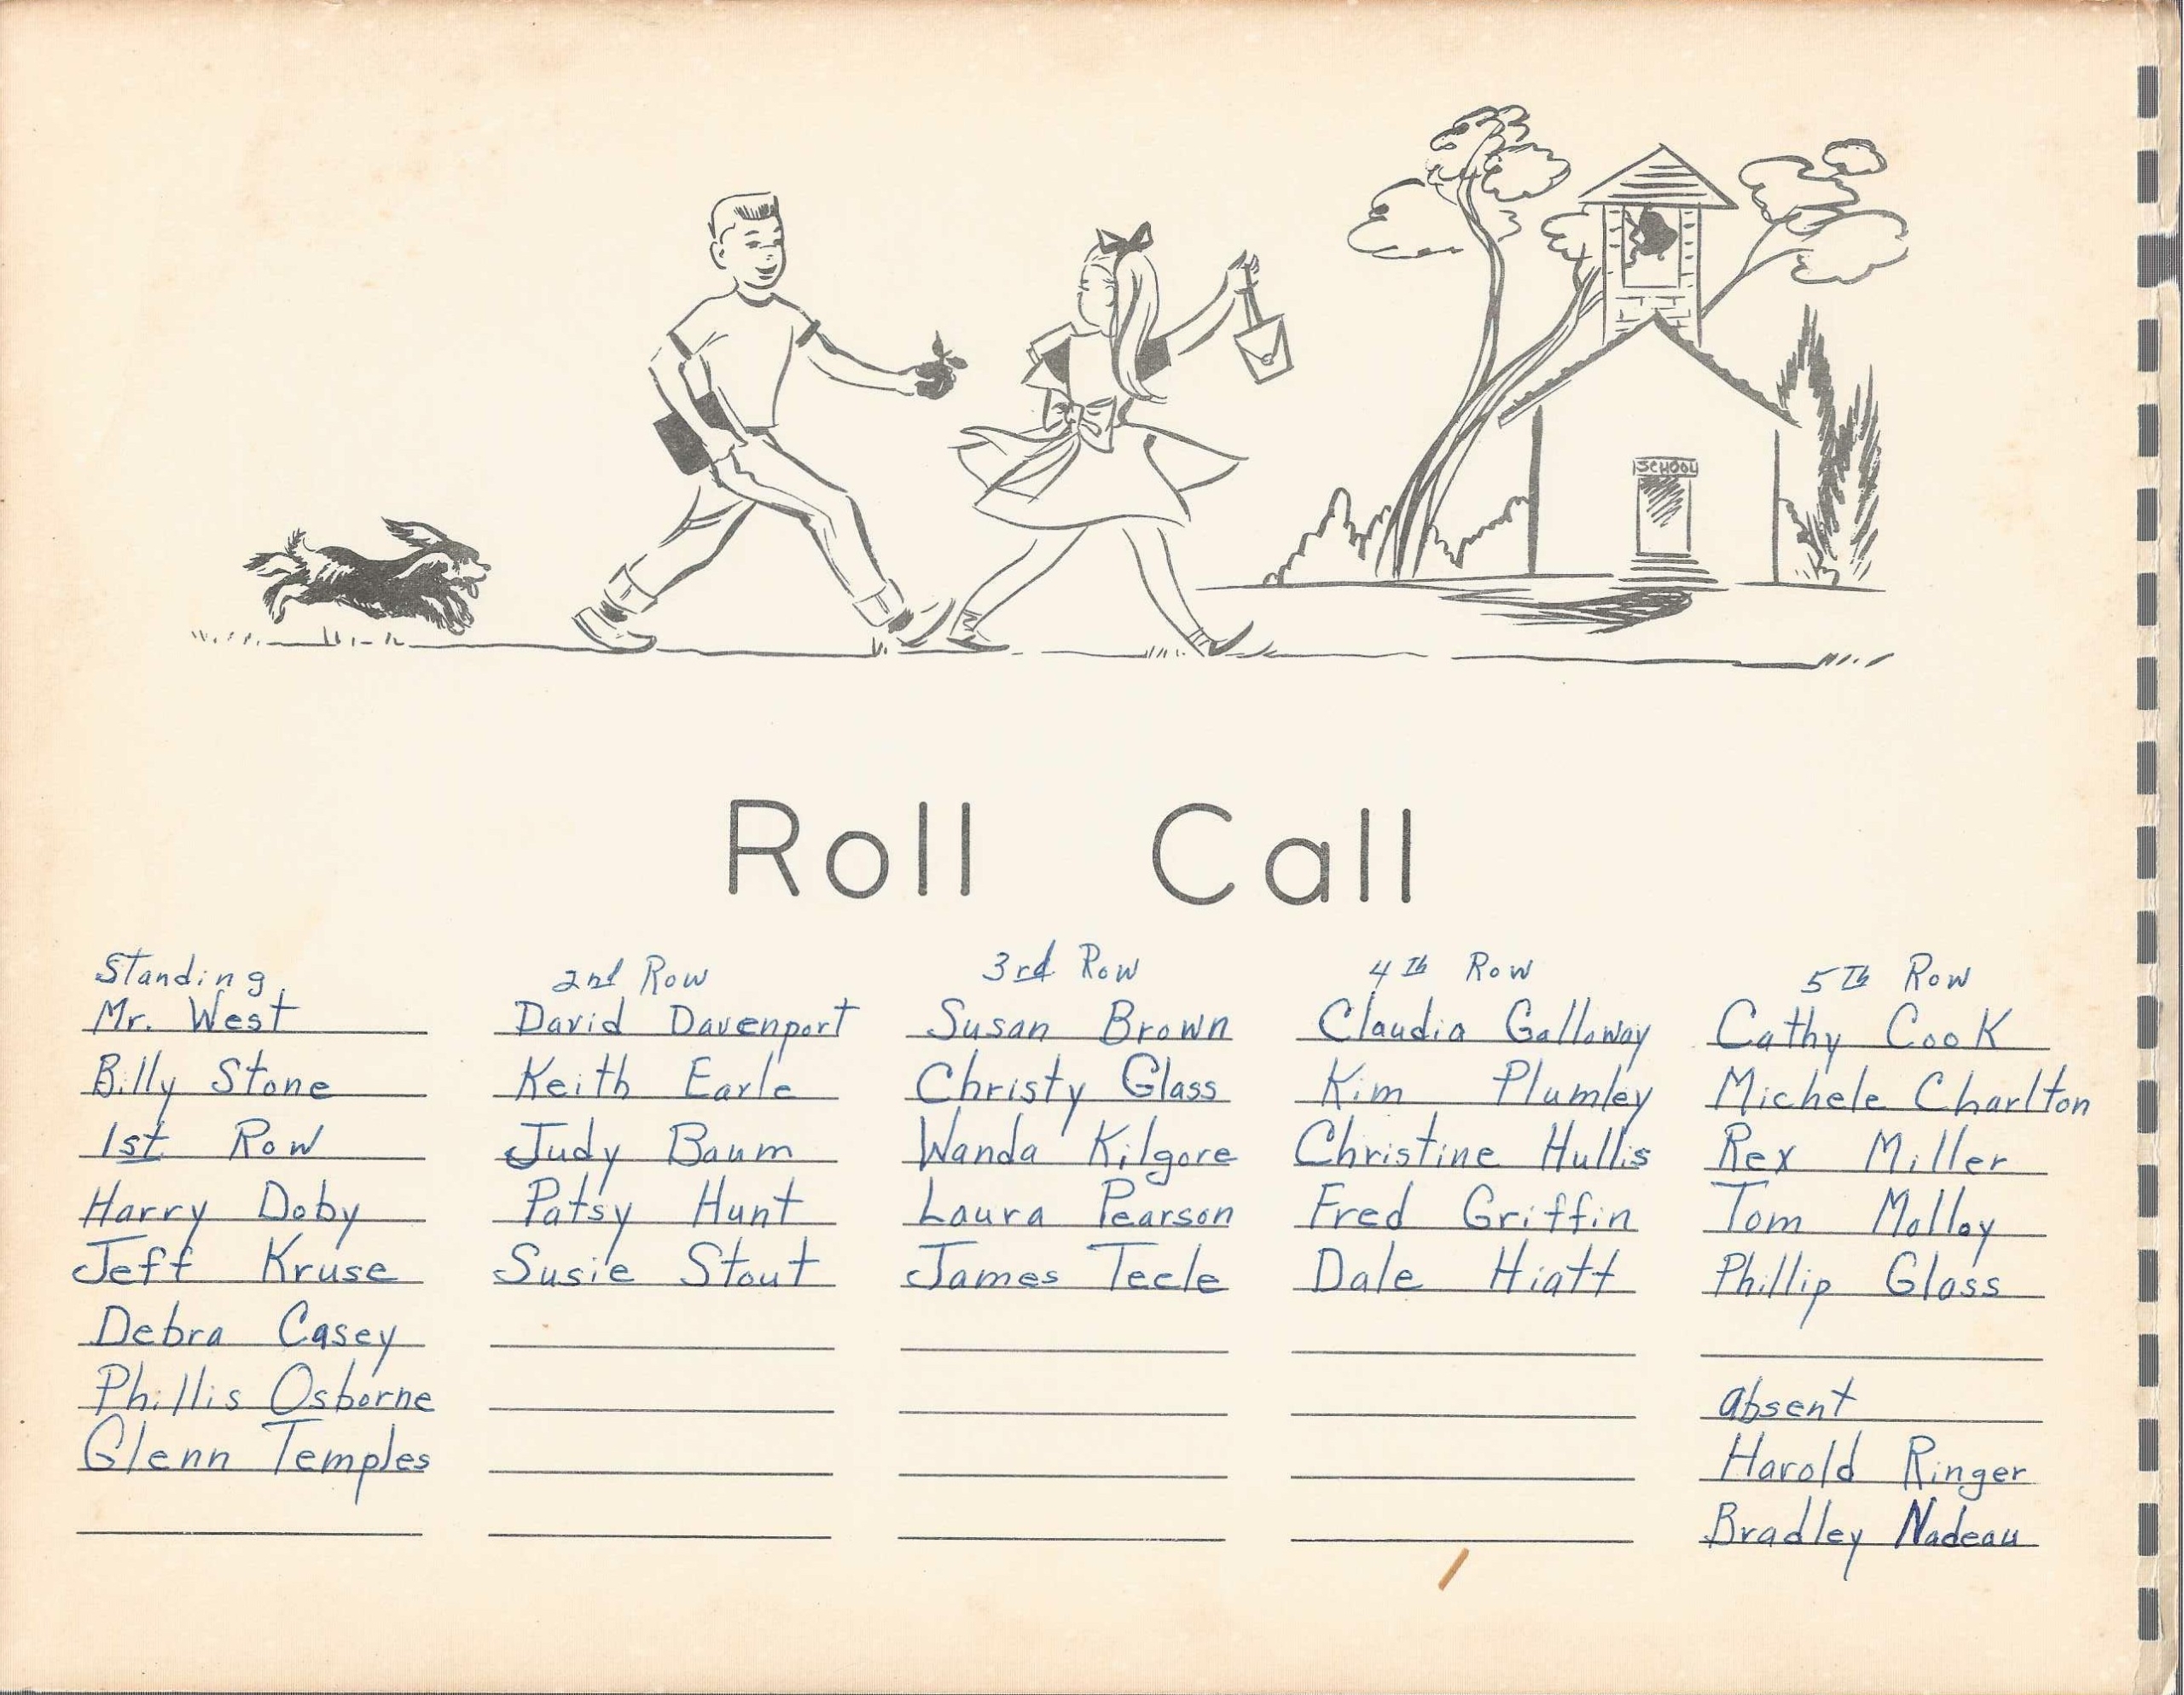 SCHOOL
Roll Call
Standing
Mr. West
Billy Stone
1st Row
Harry Doby
Jeff Kruse
Debra Casey
Phillis Osborne
Glenn Temples
2nd Row
David Davenport
Keith Earle
Judy Baum
Patsy Hunt
Susie Stout
3rd Row
Susan Brown
Christy Glass
Wanda Kilgore
Laura Pearson
James Teele
4th Row
Claudia Galloway
Kim Plumley
Christine Hullis
Fred Griffin
Dale Hiatt
5th Row
Cathy Cook
Michele Charlton
Rex Miller
Tom Molloy
Phillip Glass
absent
Harold Ringer
Bradley Nadeau